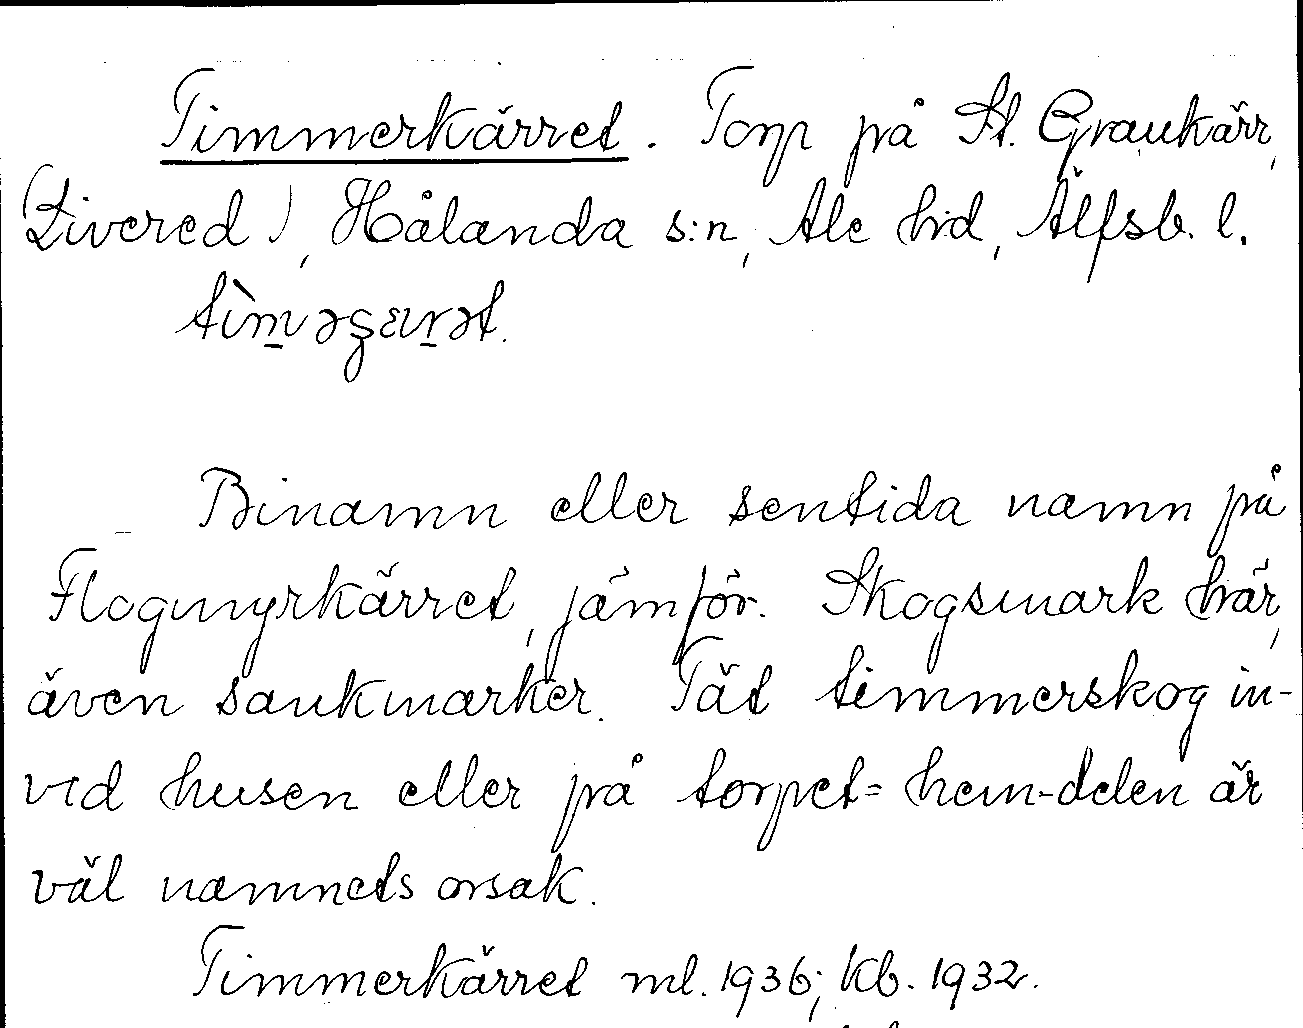 Timmerkärret. Torp på St. Graukärr,
(Livered), Hålanda s:n, Ale hrd, Älfsb. l.
Binamn eller sentida namn på
Flogmyrkärret, jämför. Skogsmark här,
även sankmarker. Tät timmerskog in-
vid husen eller på torpet= hem-delen är
väl namnets orsak.
Timmerkärret ml. 1936; kb. 1932.